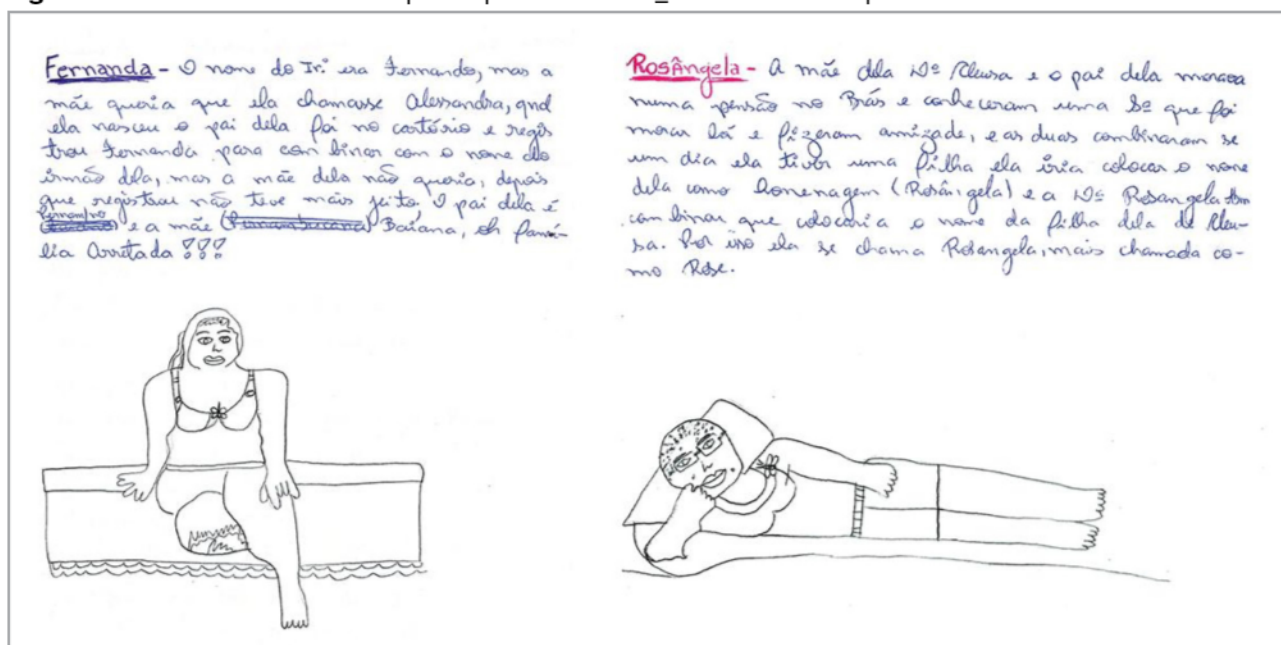 Fernanda - O nome do Ir: era Fernando, mas a
mãe queria que ela chamasse Alessandra, qnd
ela nasceu o pai dela foi no cartório e regis
trou Fernanda para combinar com o nome do
irmão dela, mas a mãe dela não queria, depois
que registrou não teve mais jeito O pai dela é
e a mãe (Pernambucana) Baiana, oh famí-
lia Arretada !!!
Rosângela - A mãe dela Dª Cleusa e o pai dela morava
numa pensão no Brás e conheceram uma Sª que foi
morar lá e fizeram amizade, e as duas combinaram se
um dia ela tiver uma filha ela iria colocar o nome
dela como homenagem (Rosângela) e a Dª Rosangela
combinou que colocaria o nome da filha dela de Cleu-
sa. Por isso ela se chama Rosangela, mais chamada co-
mo Rose.